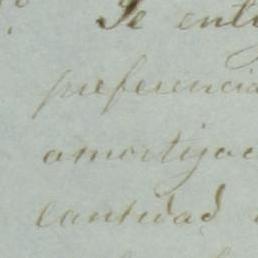 Se enti
preferencia
amortizac
cantidad